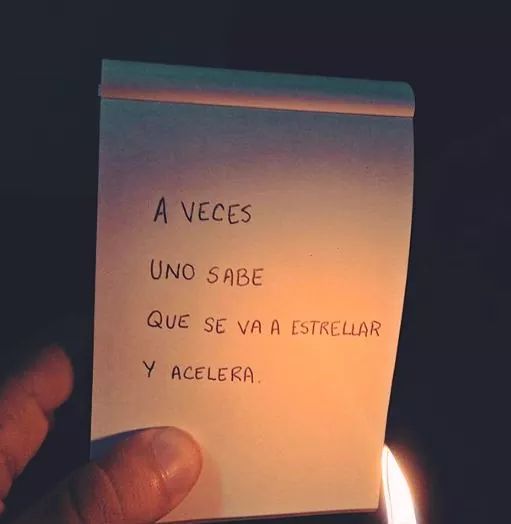 A VECES
UNO SABE
QUE SE VA A ESTRELLAR
Y ACELERA.